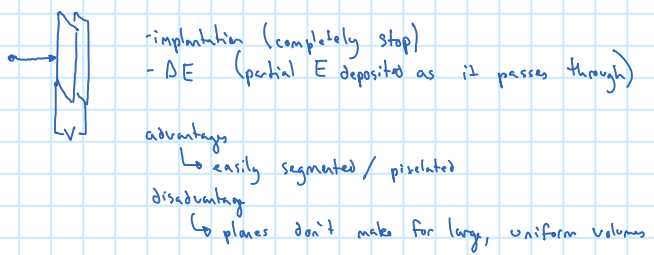 -implantation (completely stop)
- ΔE (partial E deposited as it passes through)
V
advantages
↳ easily segmented / pixelated
disadvantage
↳ planes don't make for large, uniform volumes